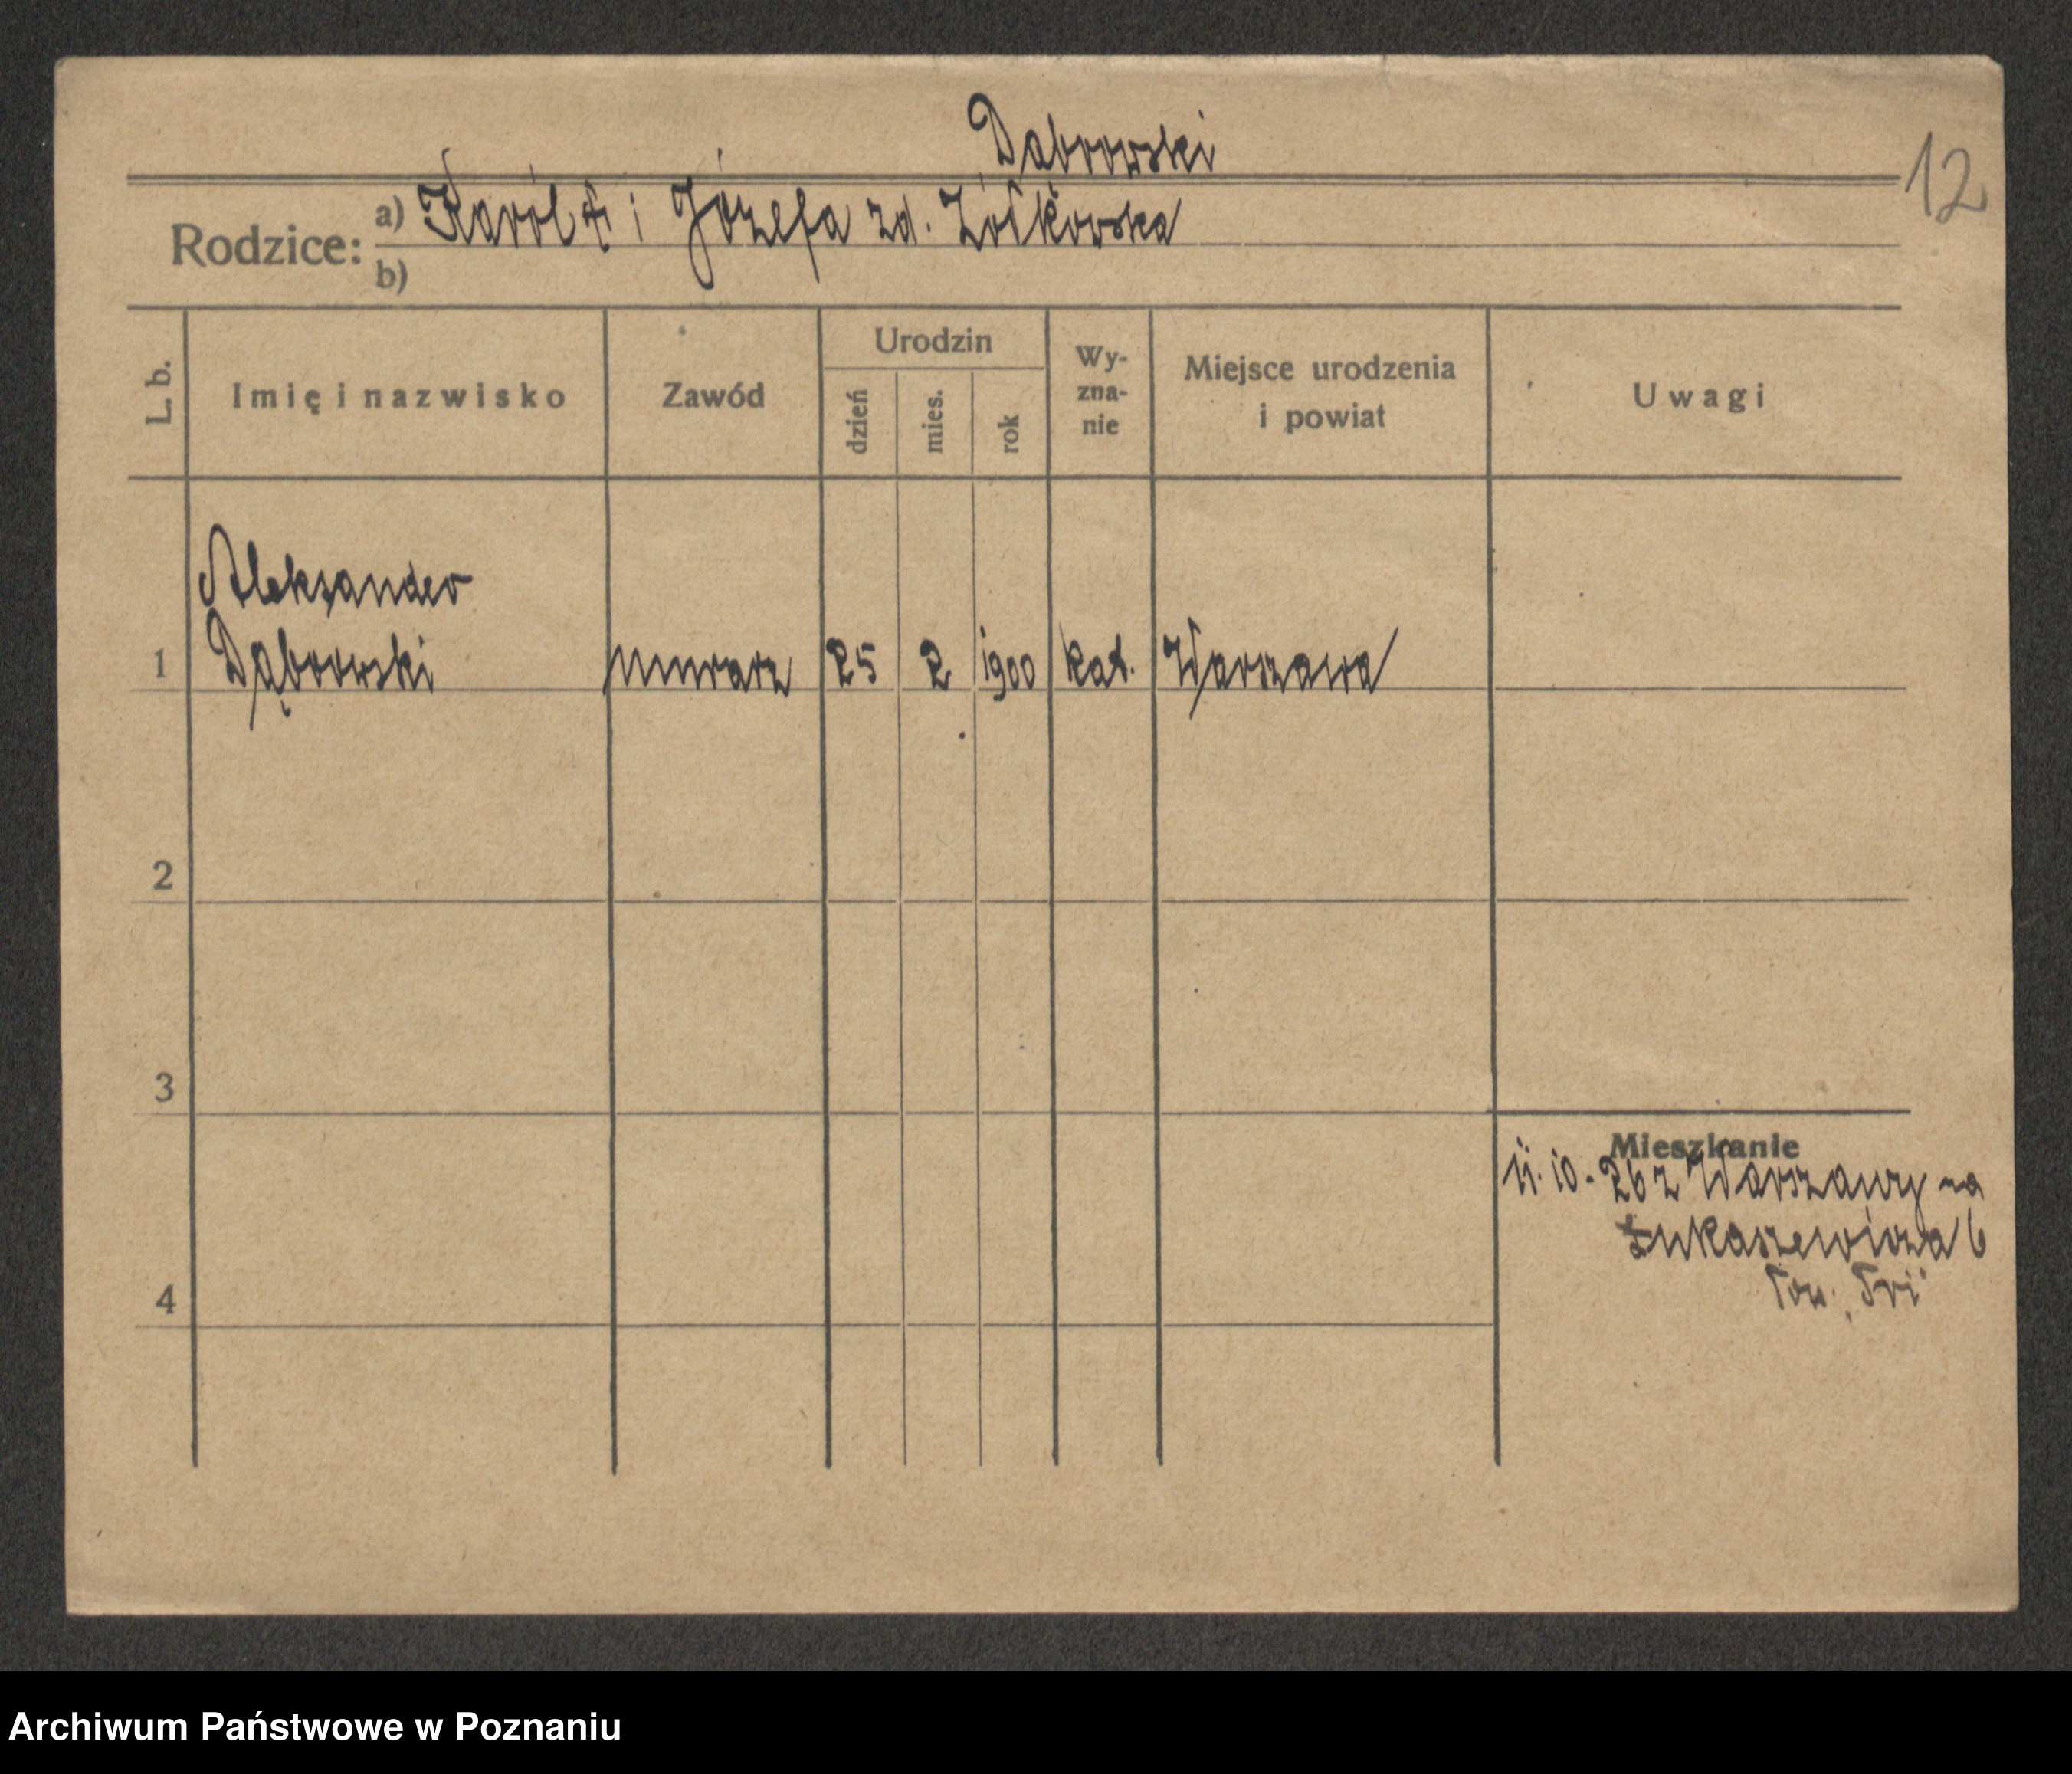 Dąbrowski
12
Rodzice: a) Karol i Józefa zd.
b)
L. b. Imię i nazwisko Zawód Urodzin dzień mies. rok Wy-zna-nie Miejsce urodzenia i powiat Uwagi
Aleksander
1 Dąbrowski murarz 25 2 1900 kat. Warszawa
2
3
Mieszkanie
11. 10. 26 z Warszawy na
Łukaszewicza 6
4
Archiwum Państwowe w Poznaniu